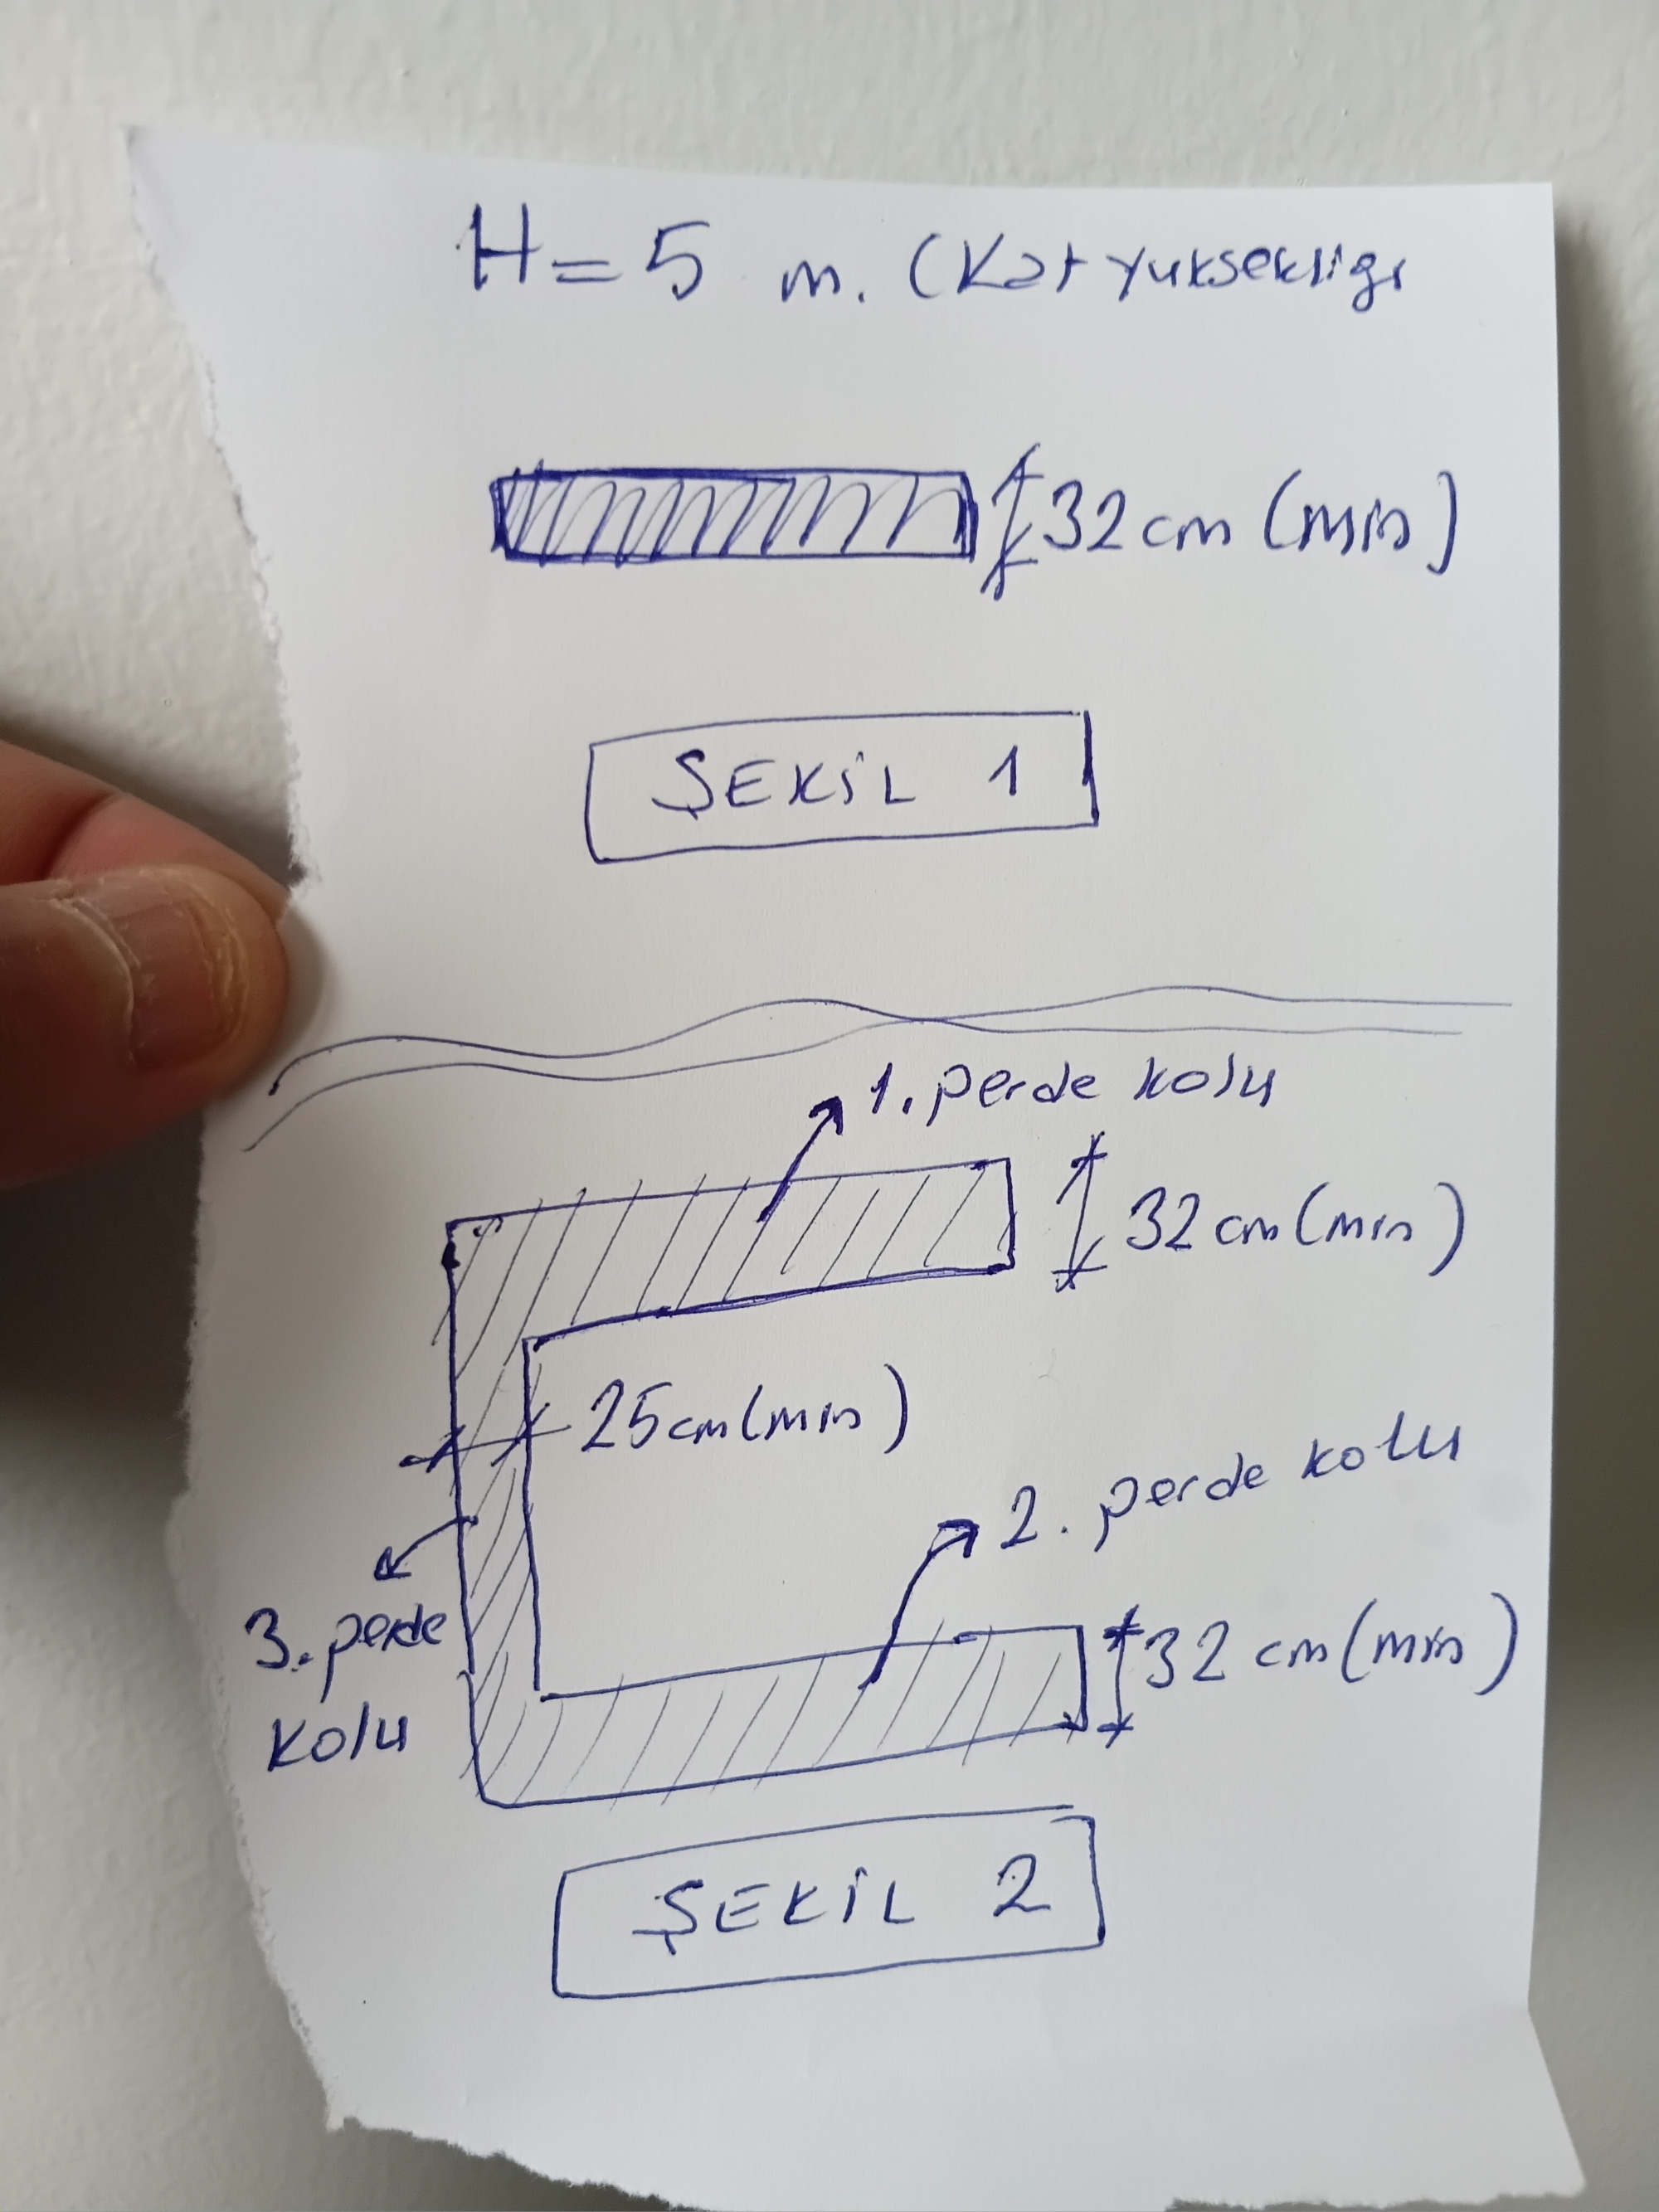 H = 5 m. (Kat yuksekligi
32 cm (min)
ŞEKİL 1
1. perde kolu
32 cm (min)
25 cm (min)
2. perde kolu
3. perde
kolu
32 cm (min)
ŞEKİL 2